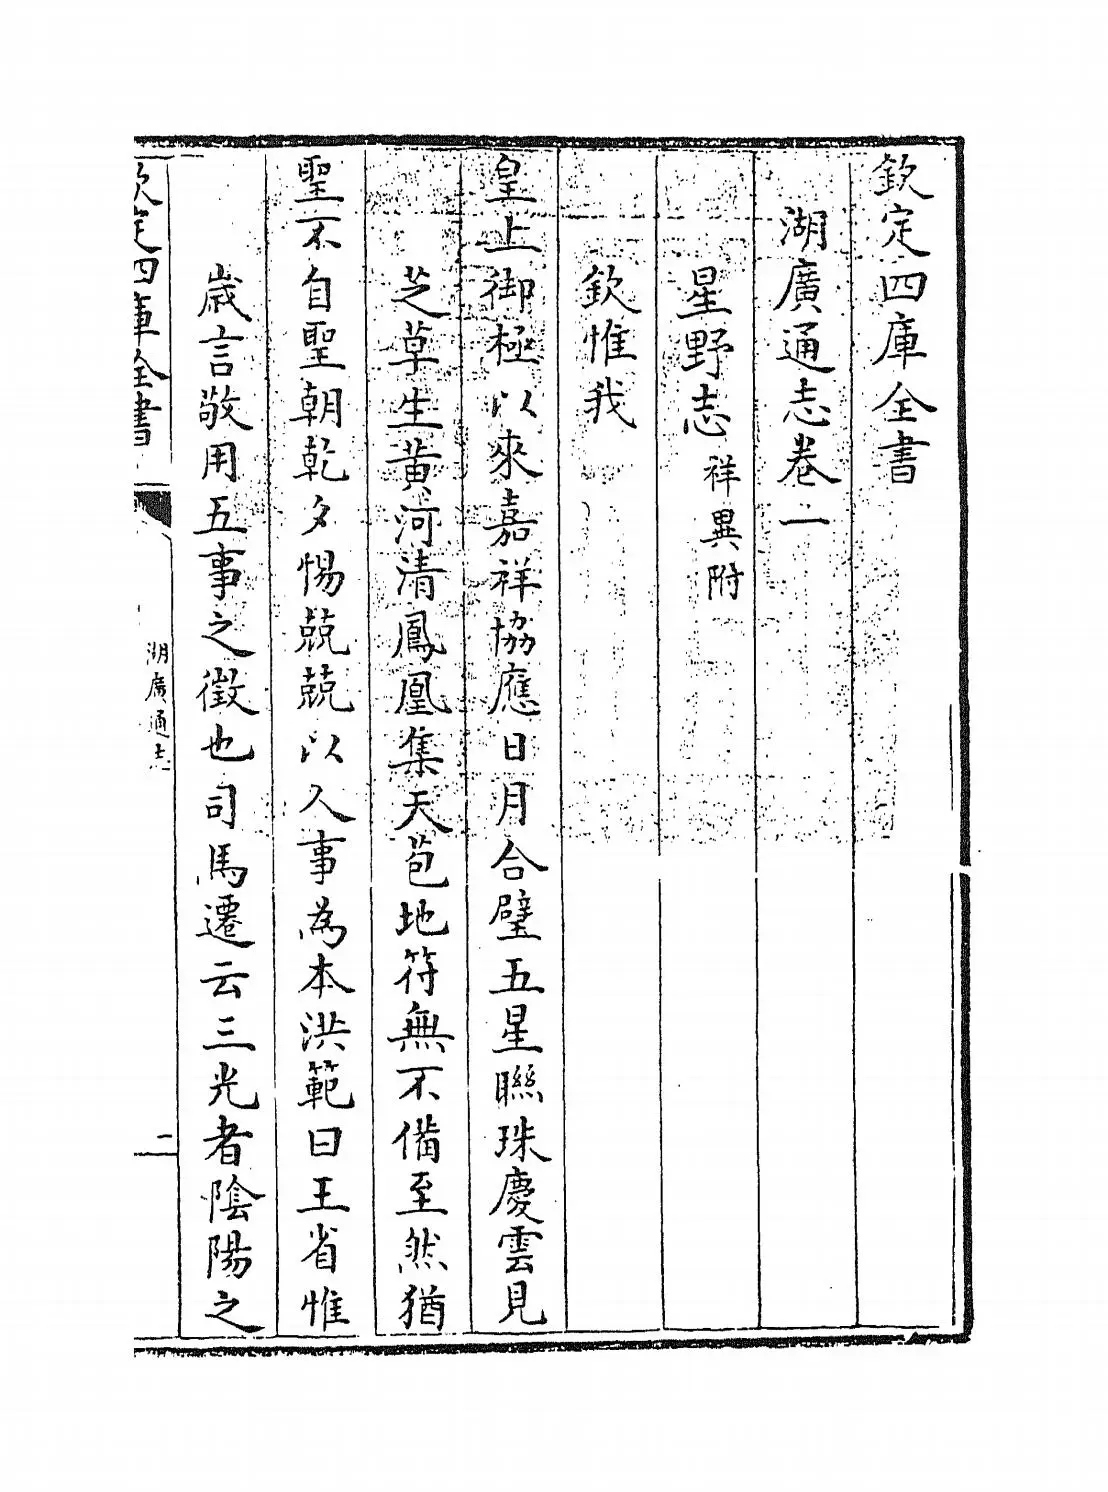 欽定四庫全書
湖廣通志卷一
星野志祥異附
欽惟我
皇上御極以來嘉祥協應日月合璧五星聯珠慶雲見
芝草生黄河清鳳凰集天苞地符無不備至然猶
聖不自聖朝乾夕惕兢兢以人事為本洪範曰王省惟
歳言敬用五事之徴也司馬遷云三光者陰陽之
欽定四庫全書
湖廣通志
二